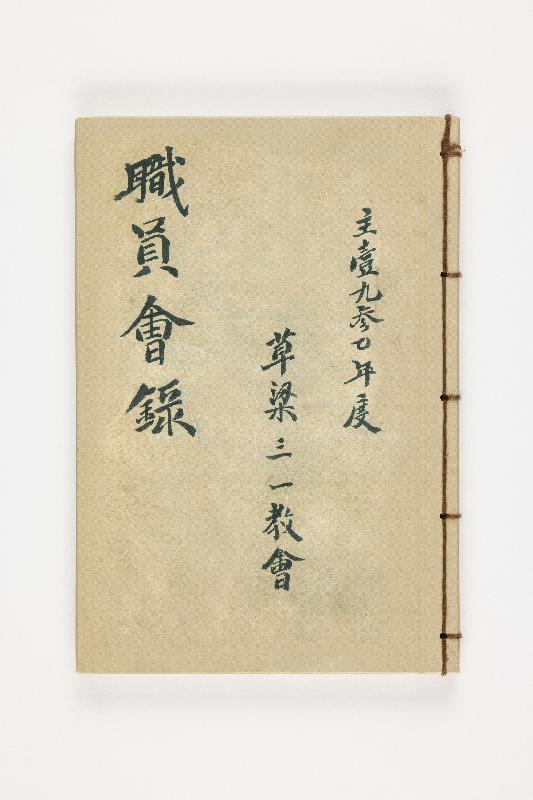 主壹九參〇年度
草梁三一教會
職員會錄